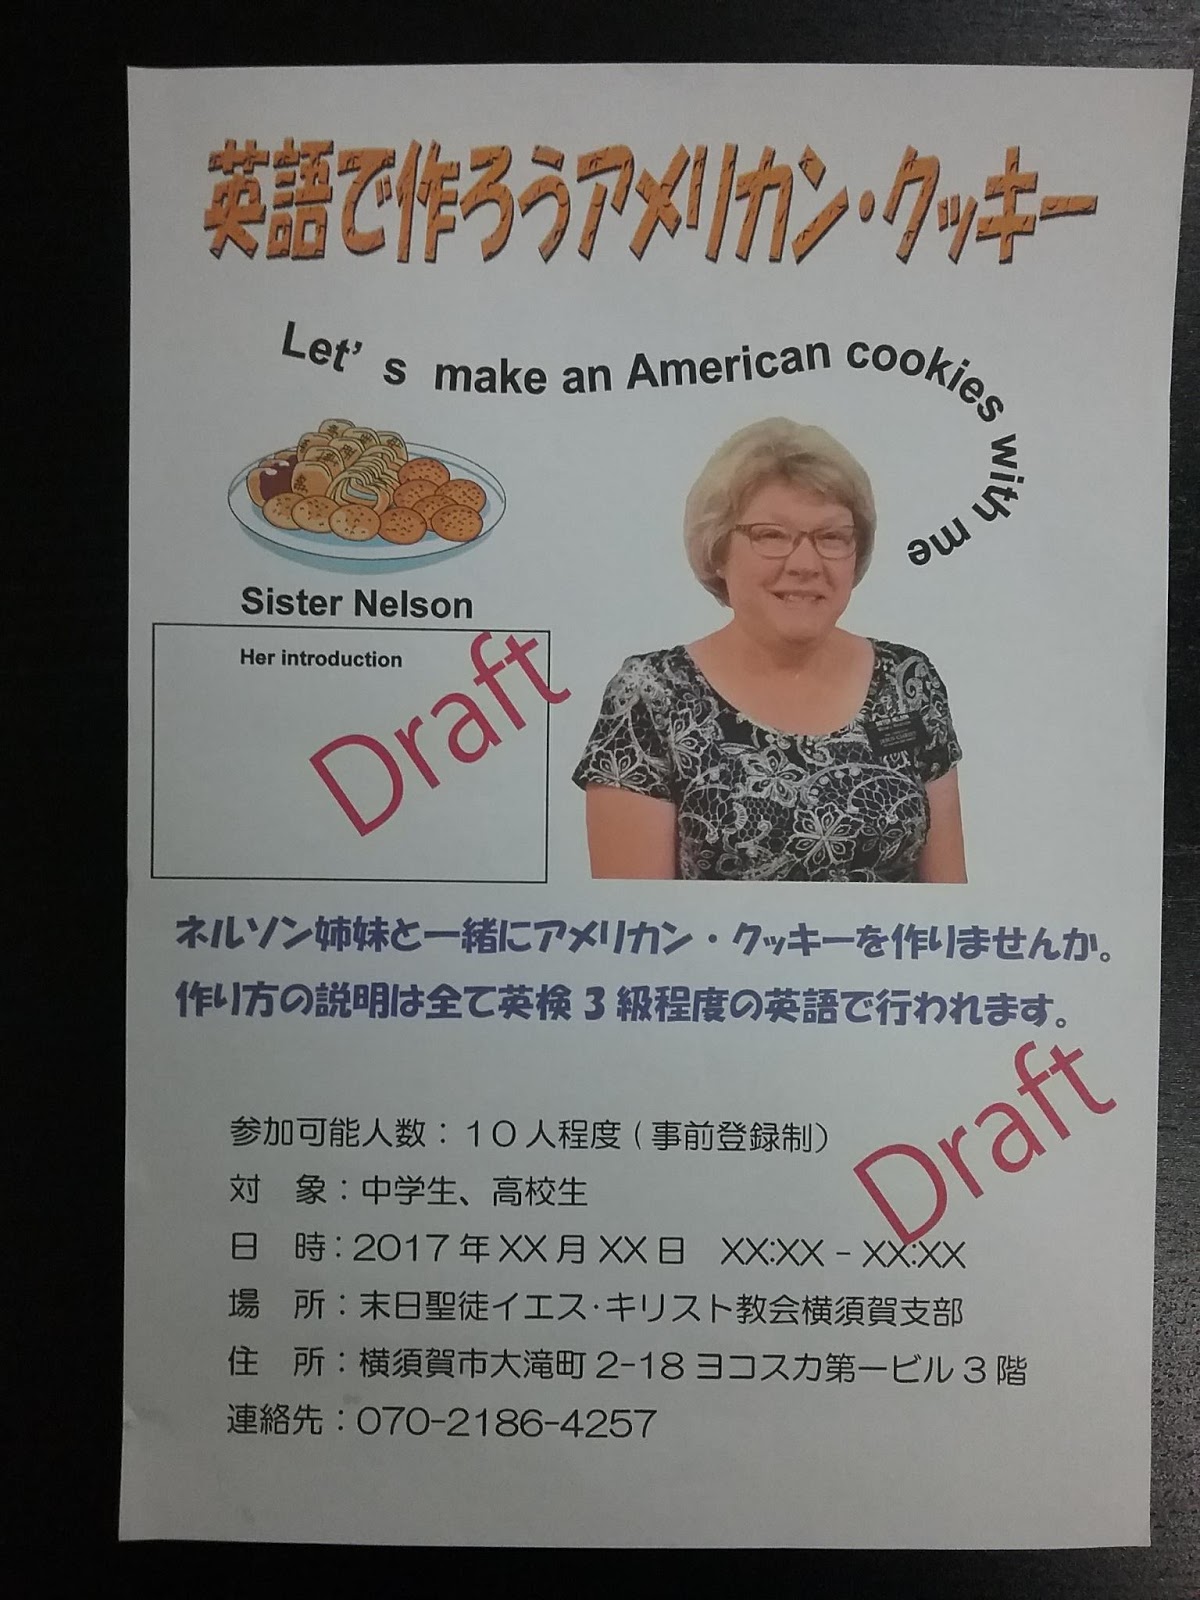 英語で作ろうアメリカン・クッキー
Let's make an American cookies with me
Sister Nelson
Her introduction
Draft
ネルソン姉妹と一緒にアメリカン・クッキーを作りませんか。
作り方の説明は全て英検3級程度の英語で行われます。
Draft
参加可能人数：10人程度(事前登録制)
対　象：中学生、高校生
日　時：2017年XX月XX日　XX:XX-XX:XX
場　所：末日聖徒イエス・キリスト教会横須賀支部
住　所：横須賀市大滝町2-18ヨコスカ第一ビル3階
連絡先：070-2186-4257